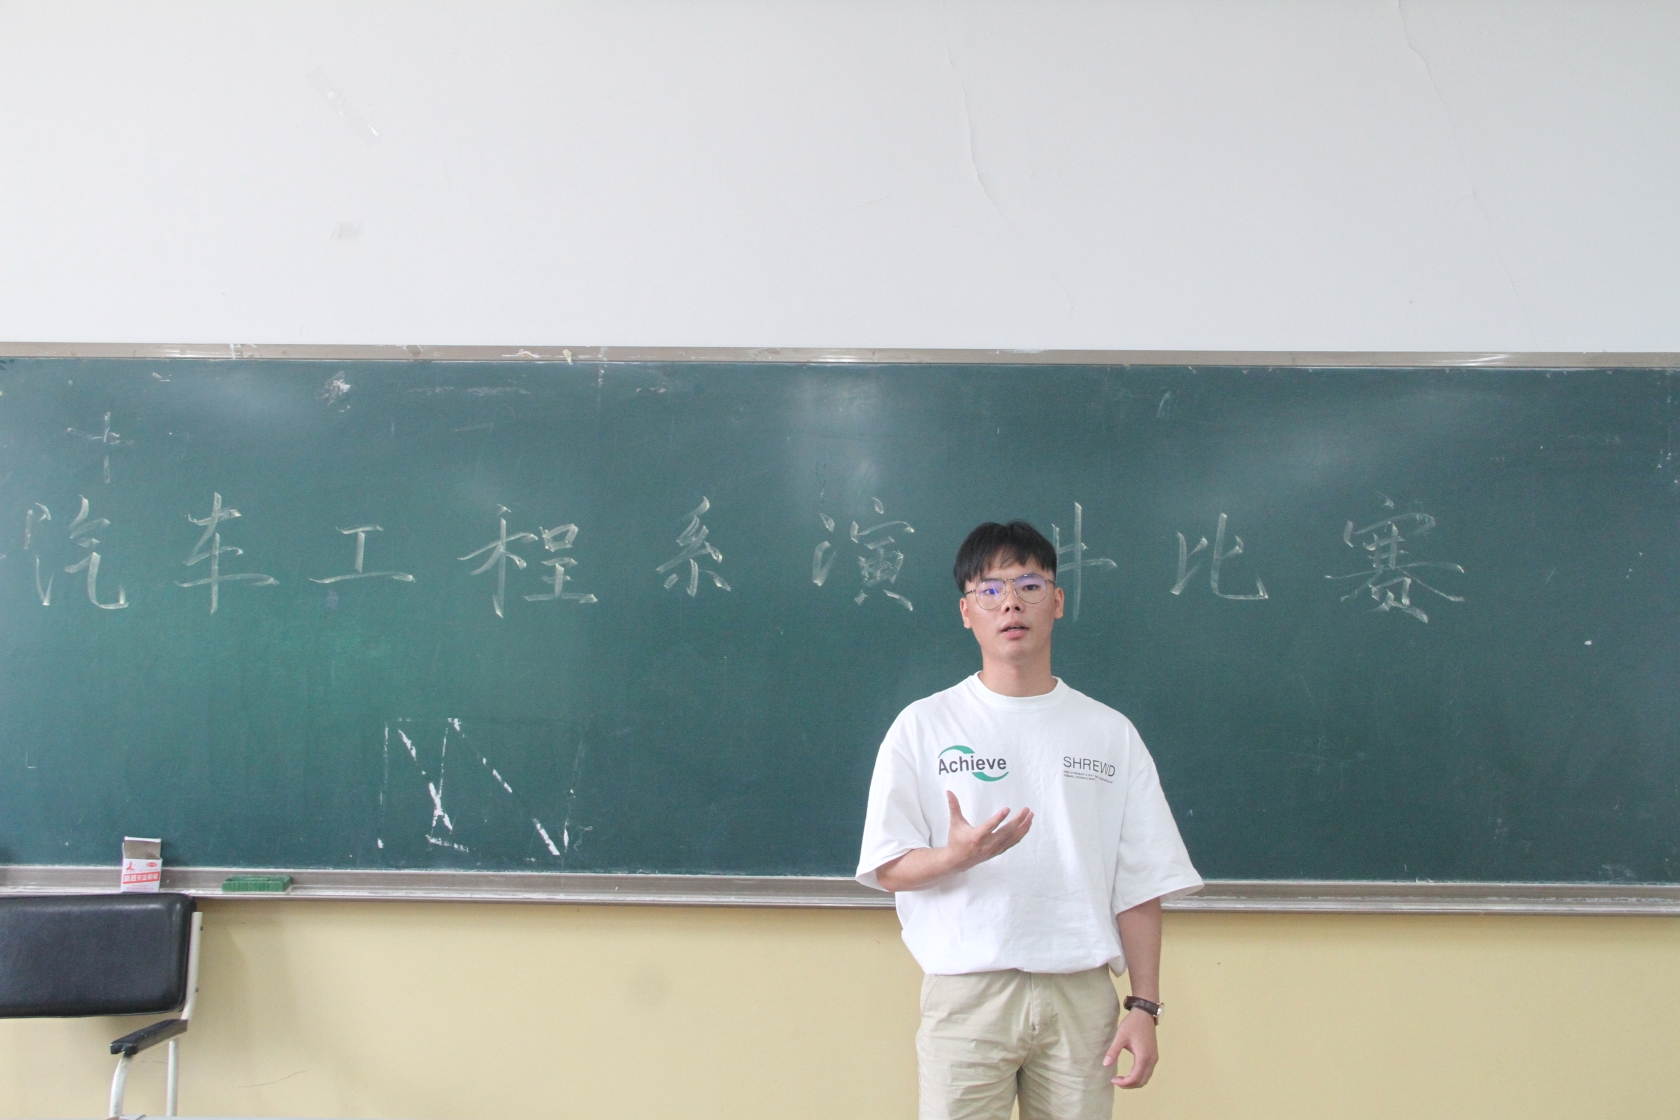 汽车工程系演讲比赛
Achieve
SHREWD